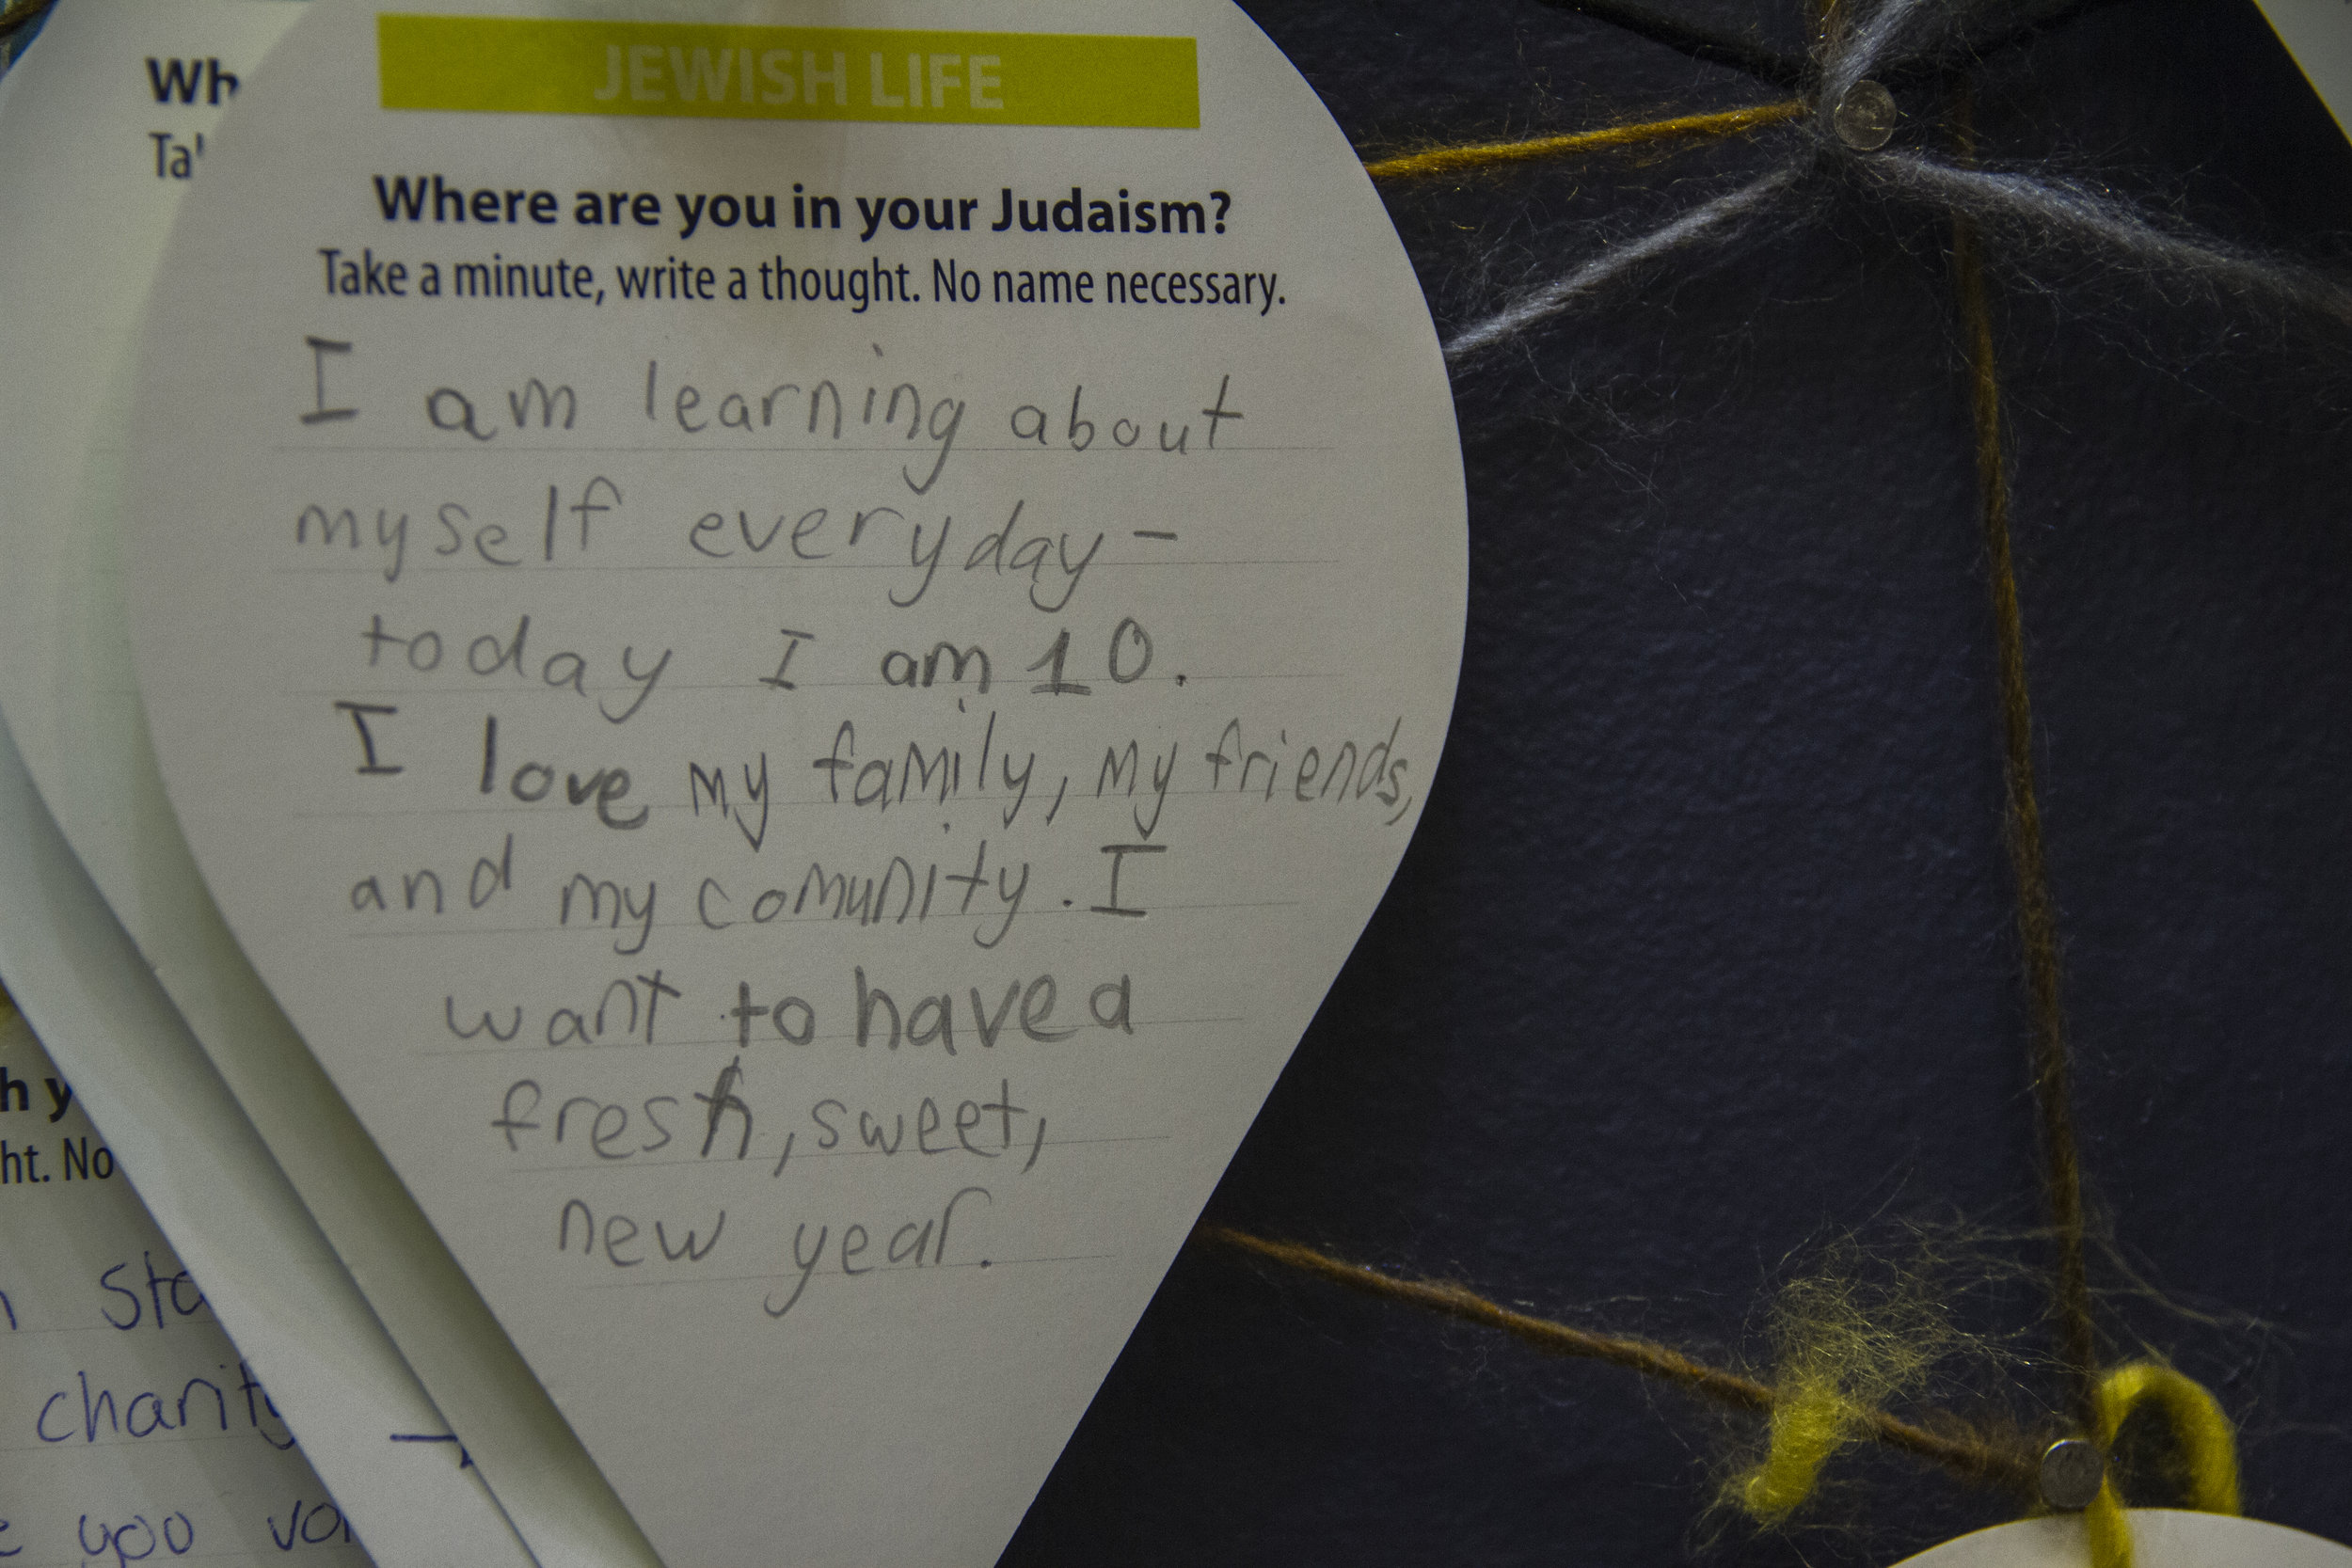 JEWISH LIFE
Where are you in your Judaism?
Take a minute, write a thought. No name necessary.
I am learning about
myself everyday-
today I am 10.
I love my family, my friends,
and my comunity. I
want to have a
fresh, sweet,
new year.
Wh
Ta
h y
ht. No
sta
charity
you vo